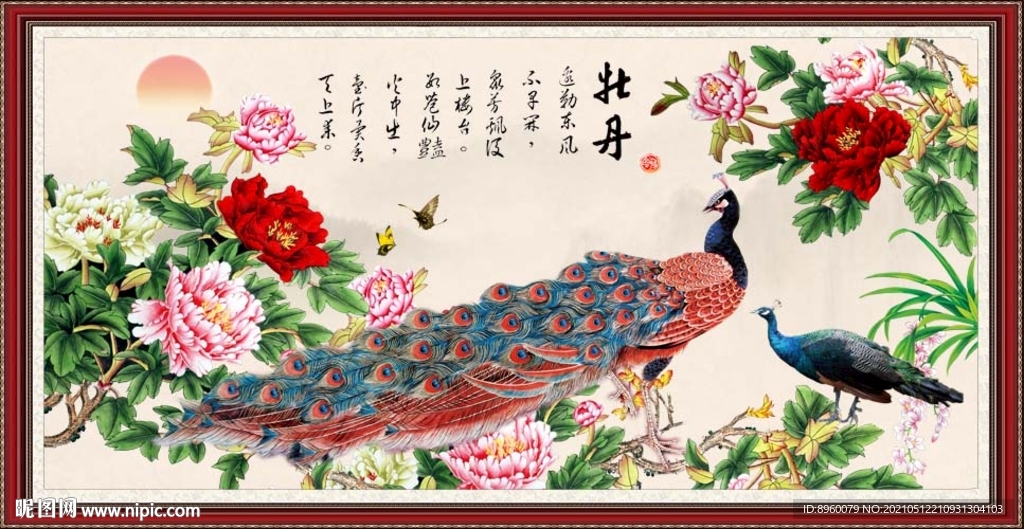 牡丹
邀勒东风
不早開，
眾芳飘後
上楼台。
数苞仙豔
火中出，
壹片异香
天上来。
昵图网 www.nipic.com
ID:8960079 NO:20210512210931304103